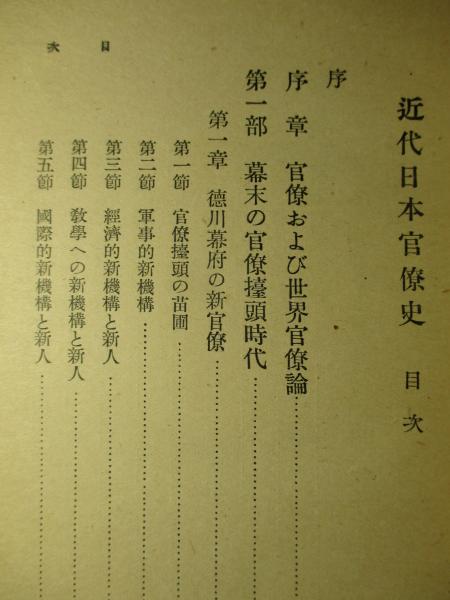 近代日本官僚史 目次
序
序章 官僚および世界官僚論
第一部 幕末の官僚擡頭時代
第一章 德川幕府の新官僚
第一節 官僚擡頭の苗圃
第二節 軍事的新機構
第三節 經濟的新機構と新人
第四節 敎學への新機構と新人
第五節 國際的新機構と新人
目次